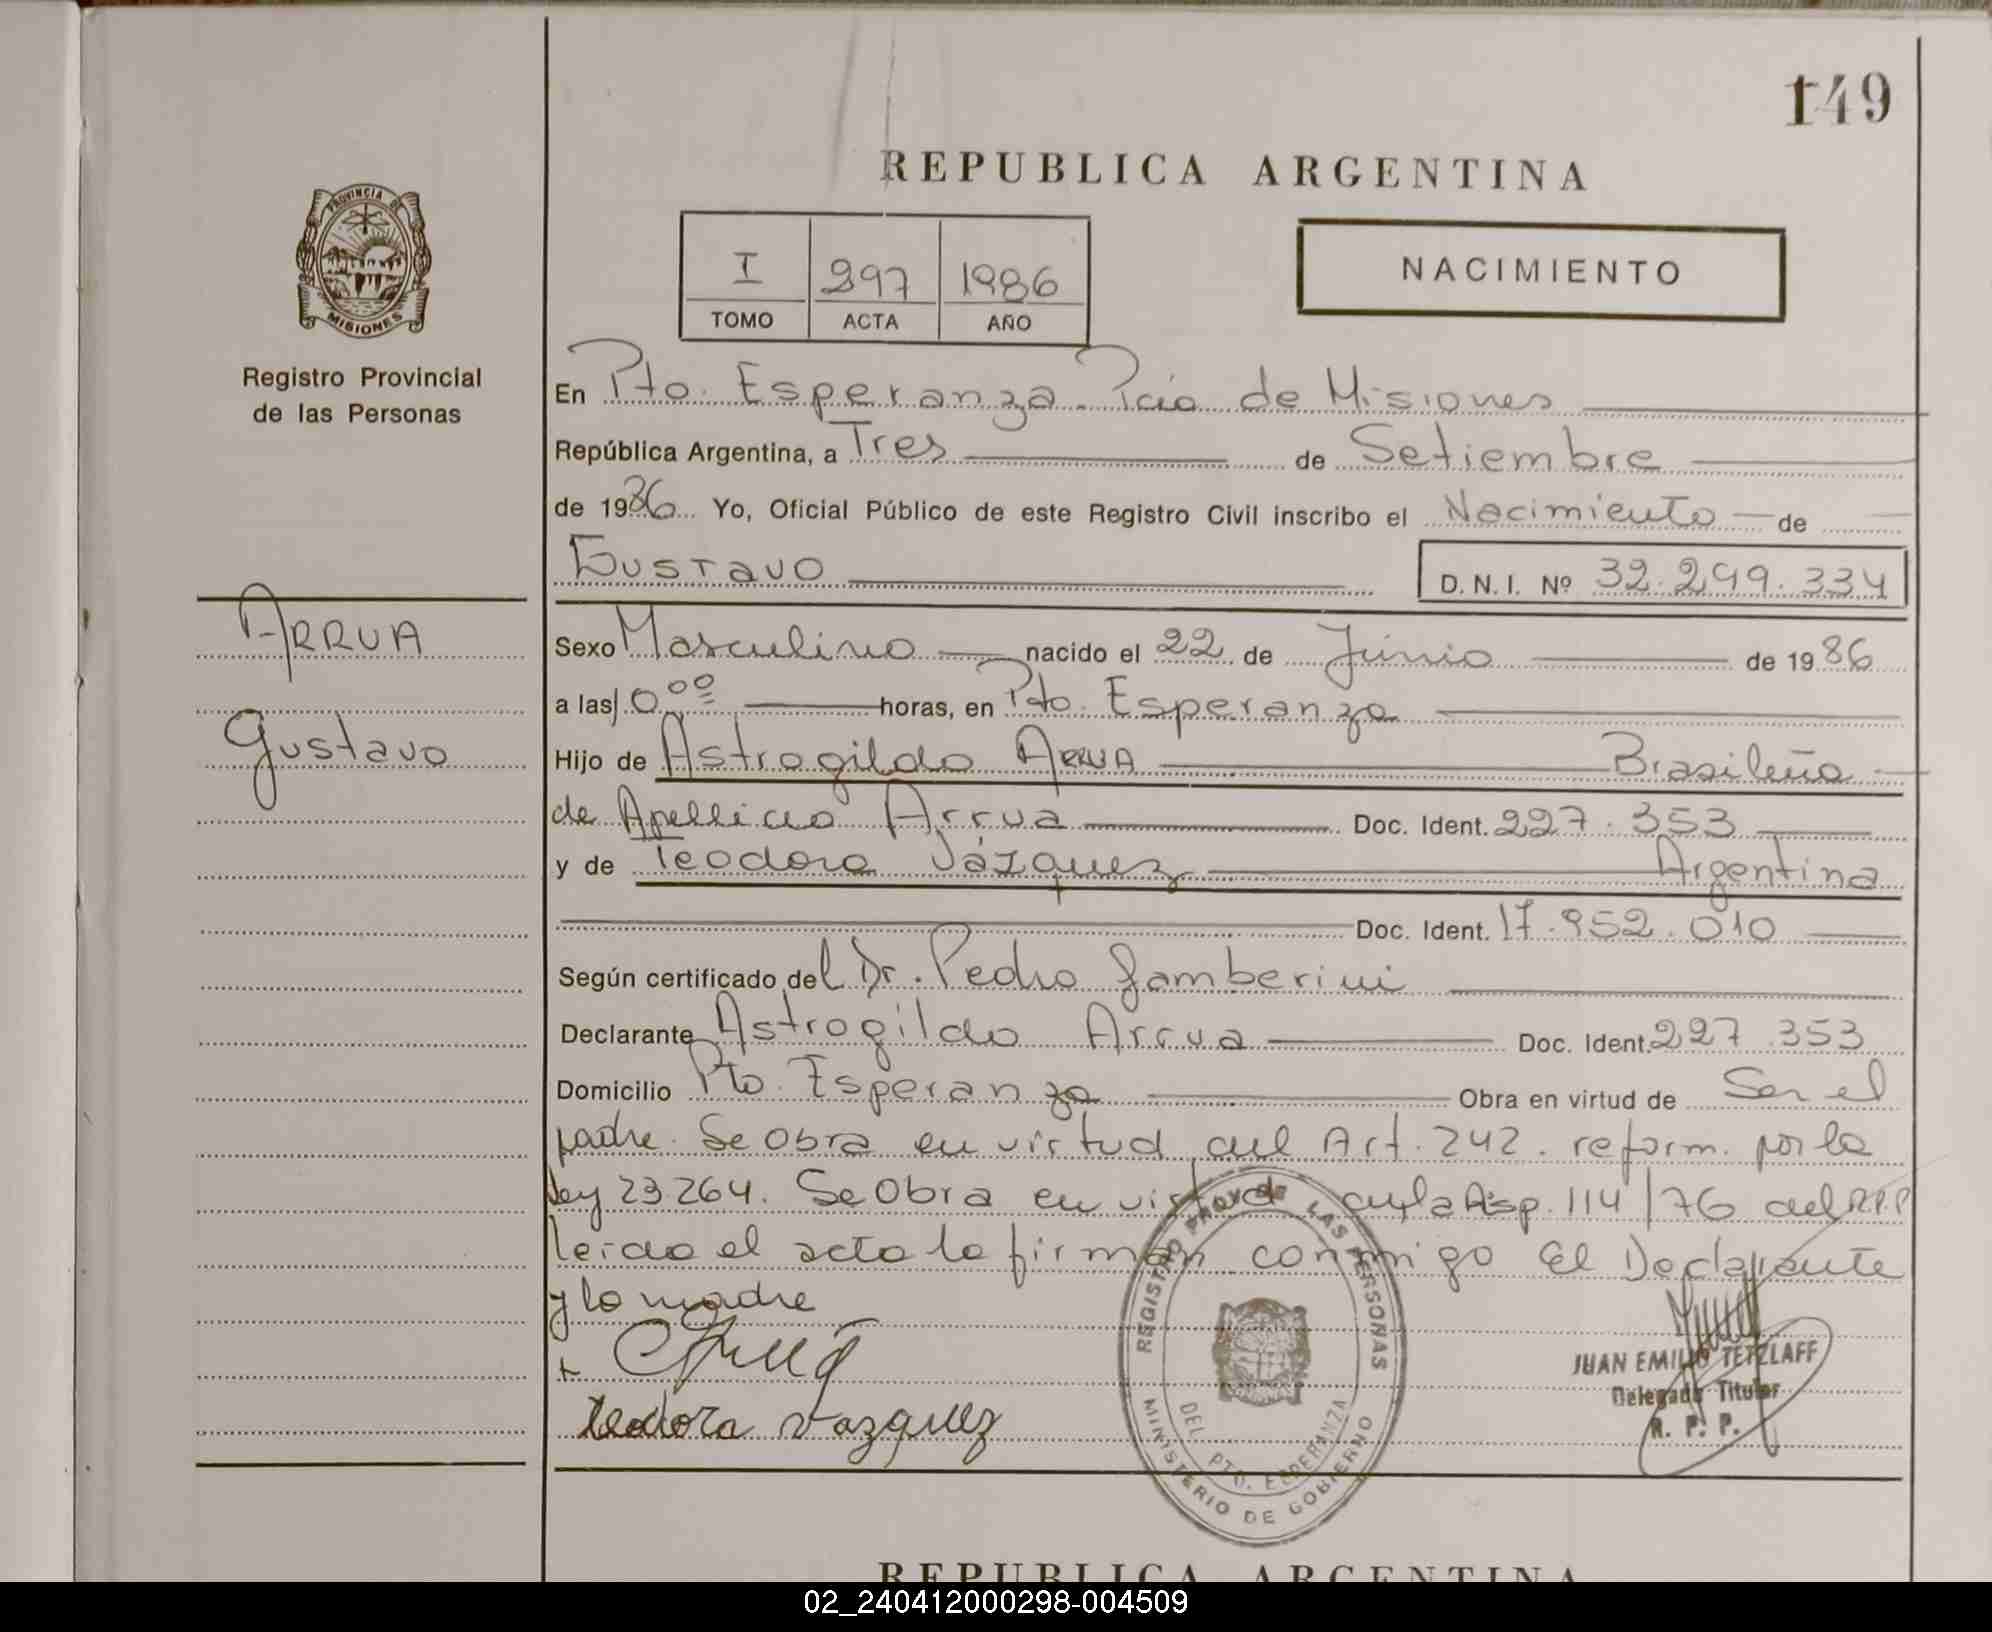 149
REPUBLICA ARGENTINA
PROVINCIA DE
MISIONES
Registro Provincial
de las Personas
I 297 1986
TOMO ACTA AÑO
NACIMIENTO
En Pto. Esperanza. Pcia de Misiones
República Argentina, a Tres de Setiembre
de 1986 Yo, Oficial Público de este Registro Civil inscribo el Nacimiento de
Gustavo D.N.I. Nº 32.299.334
ARRUA
Gustavo
Sexo Masculino nacido el 22 de Junio de 1986
a las 10⁰⁰ horas, en Pto. Esperanza
Hijo de Astrogildo ARRUA Brasileña
de Apellido Arrua Doc. Ident. 227.353
y de Teodora Vázquez Argentina
Doc. Ident. 17.952.010
Según certificado del Dr. Pedro Gamberini
Declarante Astrogildo Arrua Doc. Ident. 227.353
Domicilio Pto. Esperanza Obra en virtud de Ser el
padre. Se obra en virtud del Art. 242. reform. por la
Ley 23264. Se obra en virtud de la Disp. 114/76 del R.P.P
leido el acto lo firman conmigo El Declarante
y la madre
Teodora Vazquez
REGISTRO PROV. DE LAS PERSONAS
DEL PTO. ESPERANZA
MINISTERIO DE GOBIERNO
JUAN EMILIO TETZLAFF
Delegado Titular
R. P. P.
REPUBLICA ARGENTINA
02_240412000298-004509